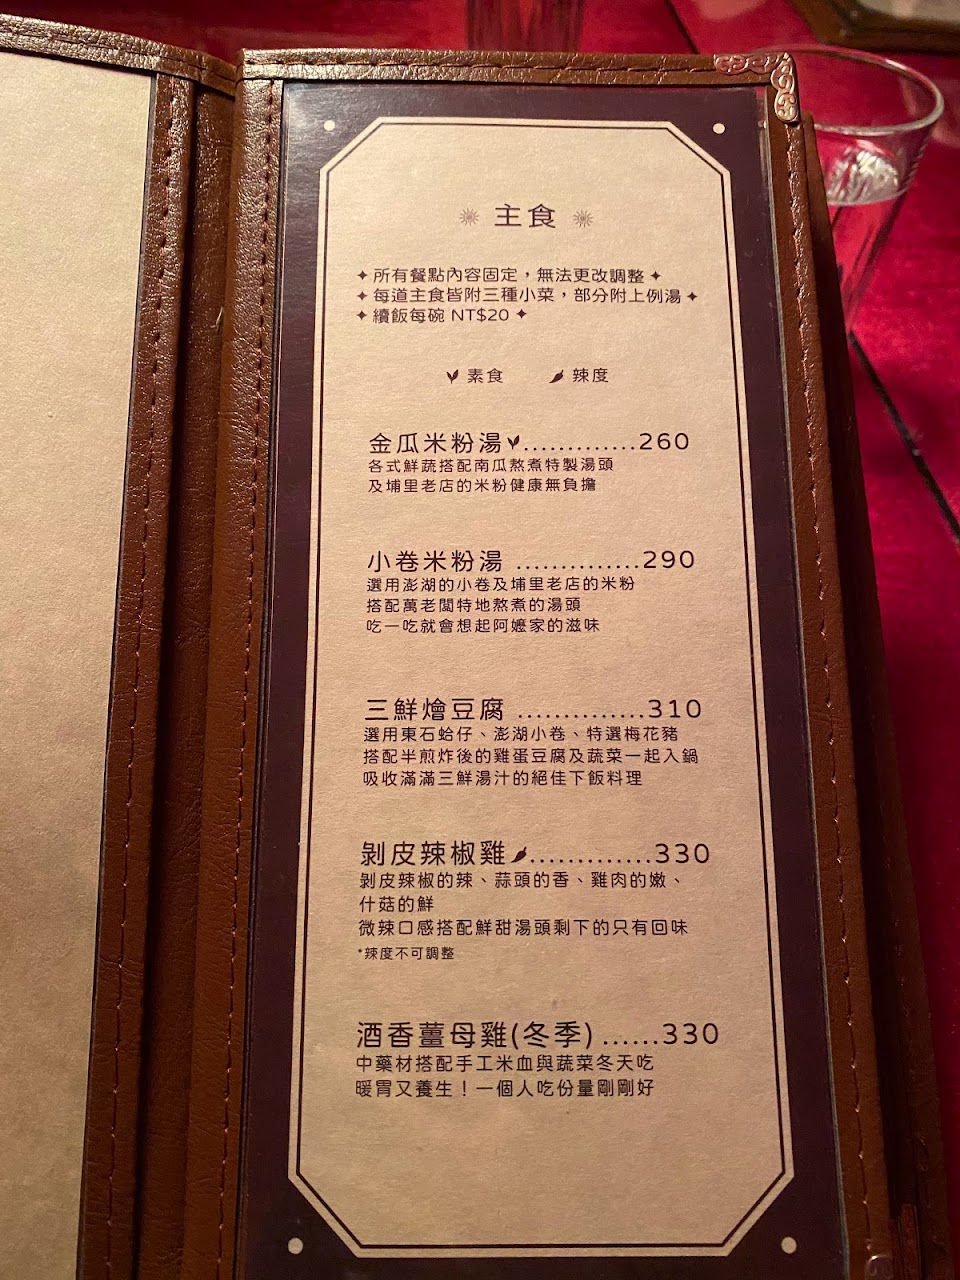 主食
✦所有餐點內容固定，無法更改調整✦
✦每道主食皆附三種小菜，部分附上例湯✦
✦續飯每碗 NT$20 ✦
素食 辣度
金瓜米粉湯.............260
各式鮮蔬搭配南瓜熬煮特製湯頭
及埔里老店的米粉健康無負擔
小卷米粉湯 ..............290
選用澎湖的小卷及埔里老店的米粉
搭配萬老闆特地熬煮的湯頭
吃一吃就會想起阿嬤家的滋味
三鮮燴豆腐 ..............310
選用東石蛤仔、澎湖小卷、特選梅花豬
搭配半煎炸後的雞蛋豆腐及蔬菜一起入鍋
吸收滿滿三鮮湯汁的絕佳下飯料理
剝皮辣椒雞..............330
剝皮辣椒的辣、蒜頭的香、雞肉的嫩、
什菇的鮮
微辣口感搭配鮮甜湯頭剩下的只有回味
*辣度不可調整
酒香薑母雞(冬季) ......330
中藥材搭配手工米血與蔬菜冬天吃
暖胃又養生！一個人吃份量剛剛好